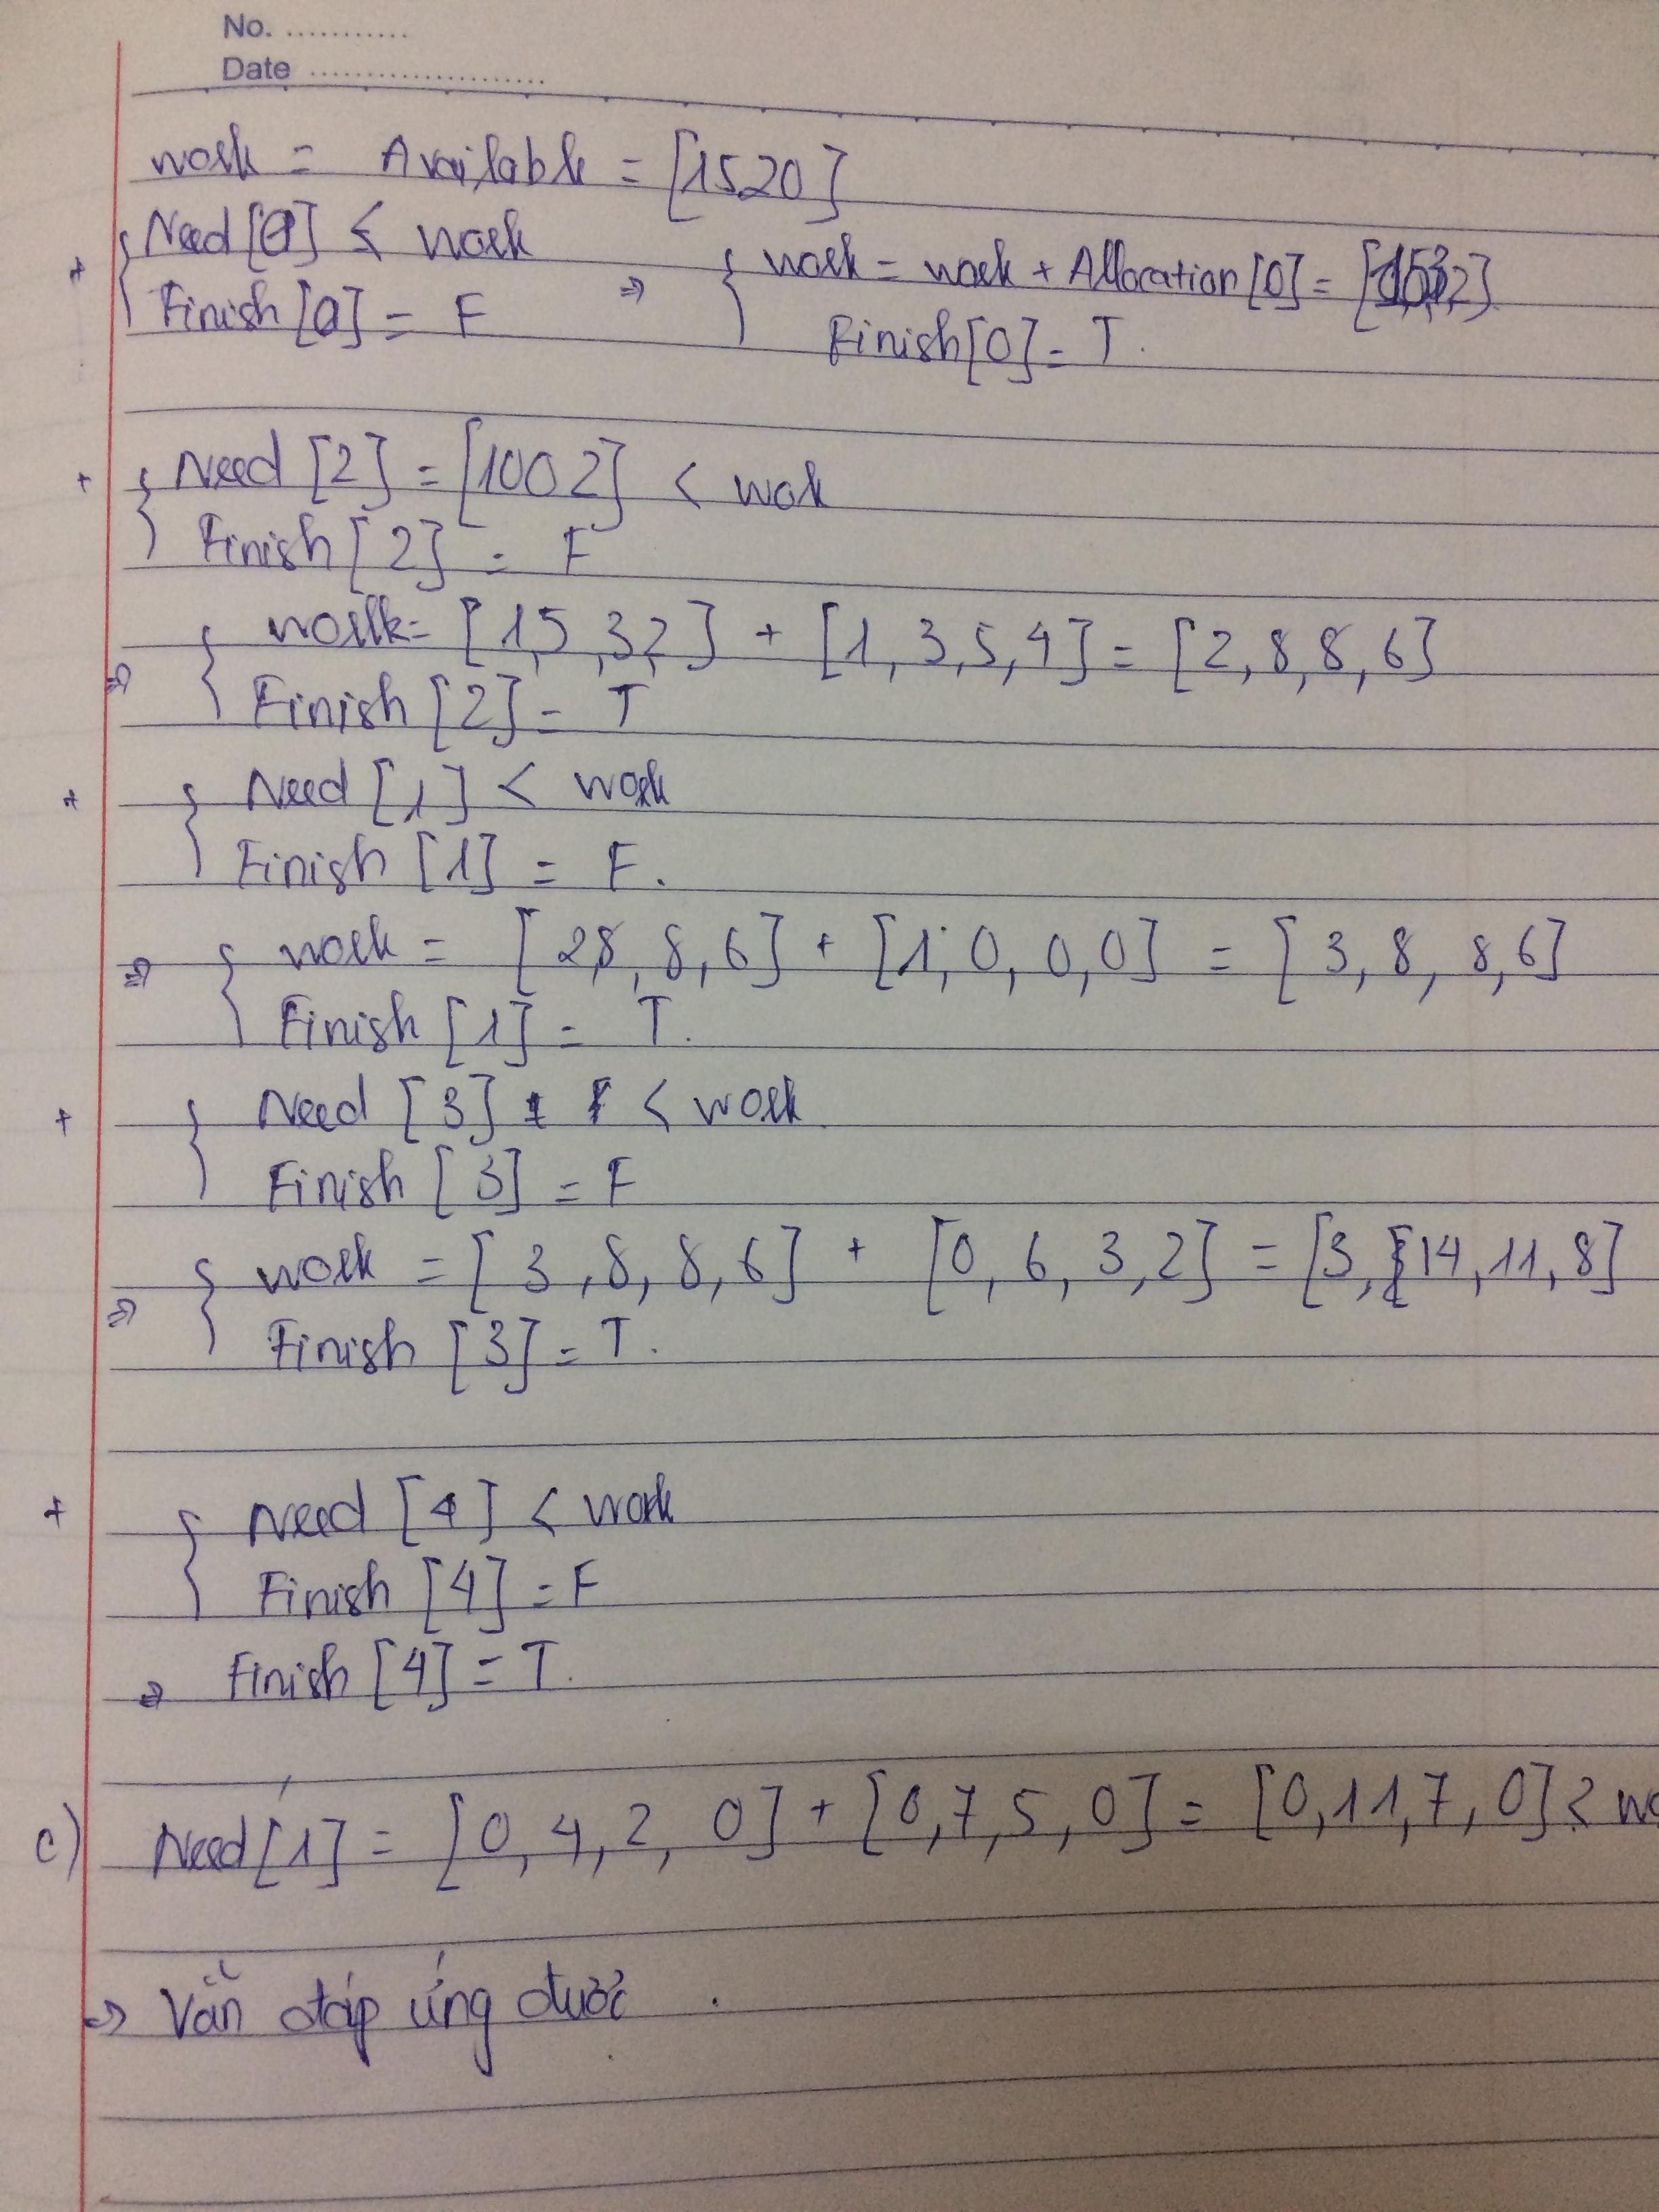 No. ...........
Date ......................
work = Available = [1520]
+ { Need[0] ≤ work
Finish[0] = F
⇒ { work = work + Allocation[0] = [1,5,3,2]
Finish[0] = T.
+ { Need [2] = [1002] < wok
Finish [2] = F
⇒ { work = [1,5,3,2] + [1,3,5,4] = [2,8,8,6]
Finish [2] = T
+ { Need [1] < work
Finish [1] = F.
⇒ { work = [2,8,8,6] + [1,0,0,0] = [3,8,8,6]
Finish [1] = T.
+ { Need [3] < work
Finish [3] = F
⇒ { work = [3,8,8,6] + [0,6,3,2] = [3,14,11,8]
Finish [3] = T.
+ { Need [4] < work
Finish [4] = F
⇒ Finish [4] = T.
c) Need[1] = [0,4,2,0] + [0,7,5,0] = [0,11,7,0] <
⇒ Vẫn đáp ứng được.